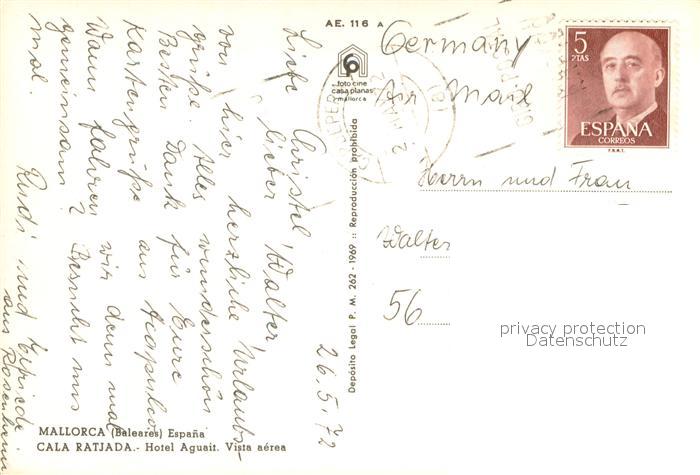 AE. 116 A
foto cine
casa planas
mallorca
Germany
Air Mail
5
PTAS
ESPAÑA
CORREOS
F.N.M.T.
Herrn und Frau
Walter
56
privacy protection
Datenschutz
Depósito Legal P. M. 262 - 1969 :: Reproducción prohibida
26.5.72
Liebe Christel
lieber Walter,
von hier herzliche Urlaubs-
grüße. Alles wunderschön
Besten Dank für Eure
Kartengrüße aus Acapulco
Wann fahren wir denn mal
gemeinsam? Besucht uns
mal.
Rudi und Elfriede
aus Rosenheim
MALLORCA (Baleares) España
CALA RATJADA.- Hotel Aguait. Vista aérea